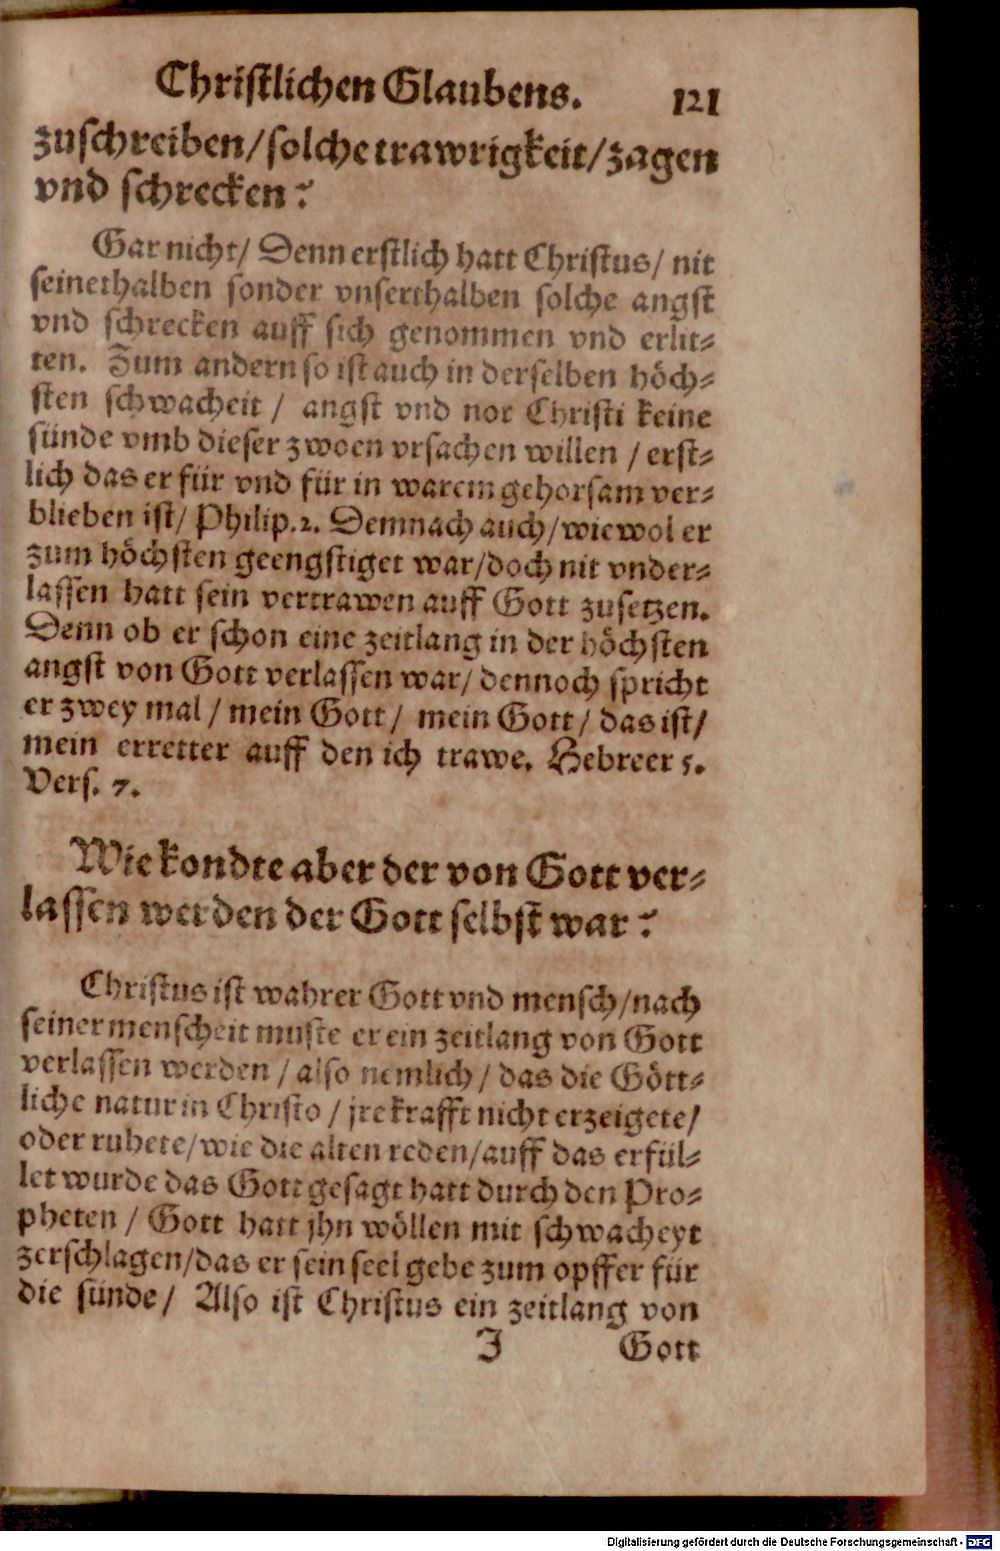 Christlichen Glaubens. 121
zuschreiben/solche trawrigkeit/zagen
vnd schrecken?
Gar nicht/ Denn erstlich hatt Christus/ nit
seinethalben sonder vnserthalben solche angst
vnd schrecken auff sich genommen vnd erlit-
ten. Zum andern so ist auch in derselben höch-
sten schwacheit / angst vnd not Christi keine
sünde vmb dieser zwoen vrsachen willen / erst-
lich das er für vnd für in warem gehorsam ver-
blieben ist/ Philip. 2. Demnach auch/wiewol er
zum höchsten geengstiget war/doch nit vnder-
lassen hatt sein vertrawen auff Gott zusetzen.
Denn ob er schon eine zeitlang in der höchsten
angst von Gott verlassen war/ dennoch spricht
er zwey mal / mein Gott / mein Gott / das ist/
mein erretter auff den ich trawe. Hebreer 5.
Vers. 7.
Wie kondte aber der von Gott ver-
lassen werden der Gott selbst war?
Christus ist wahrer Gott vnd mensch/nach
seiner menscheit muste er ein zeitlang von Gott
verlassen werden / also nemlich / das die Gött-
liche natur in Christo / jre krafft nicht erzeigete/
oder ruhete/wie die alten reden/auff das erfül-
let wurde das Gott gesagt hatt durch den Pro-
pheten / Gott hatt jhn wöllen mit schwacheyt
zerschlagen/das er sein seel gebe zum opffer für
die sünde / Also ist Christus ein zeitlang von
J Gott
Digitalisierung gefördert durch die Deutsche Forschungsgemeinschaft - DFG